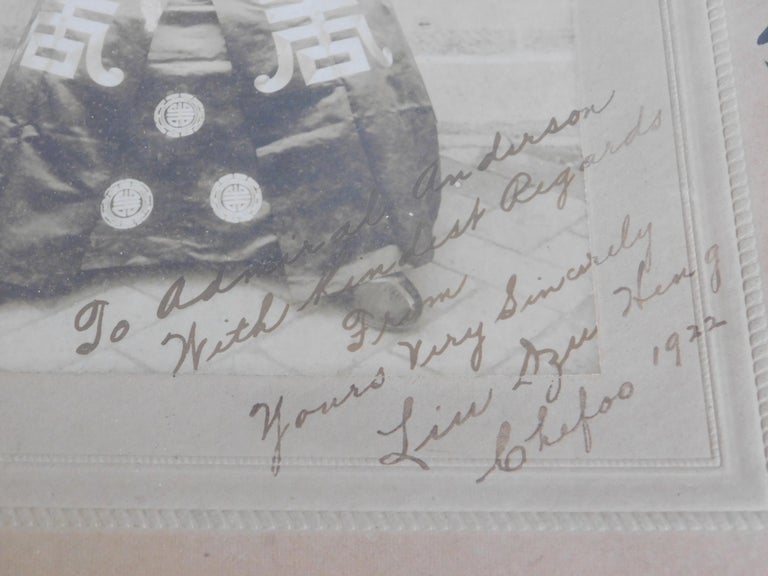 To Admiral Anderson
With Kindest Regards
From
Yours Very Sincerely
Liu Dzu Heng
Chefoo 1922